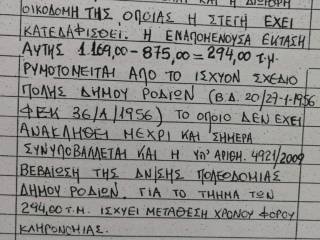 ΚΑΙ Η ΔΙΩΡΟΦΗ
ΟΙΚΟΔΟΜΗ ΤΗΣ ΟΠΟΙΑΣ Η ΣΤΕΓΗ ΕΧΕΙ
ΚΑΤΕΔΑΦΙΣΘΕΙ. Η ΕΝΑΠΟΜΕΝΟΥΣΑ ΕΚΤΑΣΗ
ΑΥΤΗΣ 1.169,00 - 875,00 = 294,00 Τ.Μ.
ΡΥΜΟΤΟΝΕΙΤΑΙ ΑΠΟ ΤΟ ΙΣΧΥΟΝ ΣΧΕΔΙΟ
ΠΟΛΗΣ ΔΗΜΟΥ ΡΟΔΙΩΝ (Β.Δ. 20/27-1-1956
ΦΕΚ 36/Α/1956) ΤΟ ΟΠΟΙΟ ΔΕΝ ΕΧΕΙ
ΑΝΑΚΛΗΘΕΙ ΜΕΧΡΙ ΚΑΙ ΣΗΜΕΡΑ
ΣΥΝΥΠΟΒΑΛΛΕΤΑΙ ΚΑΙ Η ΥΠ' ΑΡΙΘΜ. 4921/2009
ΒΕΒΑΙΩΣΗ ΤΗΣ ΔΝ/ΣΗΣ ΠΟΛΕΟΔΟΜΙΑΣ
ΔΗΜΟΥ ΡΟΔΙΩΝ. ΓΙΑ ΤΟ ΤΜΗΜΑ ΤΩΝ
294,00 Τ.Μ. ΙΣΧΥΕΙ ΜΕΤΑΘΕΣΗ ΧΡΟΝΟΥ ΦΟΡΟΥ
ΚΛΗΡΟΝΟΜΙΑΣ.